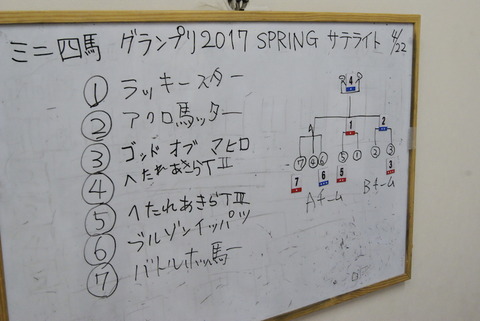 ミニ四馬 グランプリ2017 SPRING サテライト 4/22
① ラッキースター
② アクロ馬ッター
③ ゴッド オブ マヒロ
④ へたれあきらTⅡ
⑤ へたれあきらTⅢ
⑥ ブルゾンイッパツ
⑦ バトルホッ馬ー
4
1 2
⑦ ④ ⑥ ⑤ ① ② ③
7 6 5 3
Aチーム Bチーム